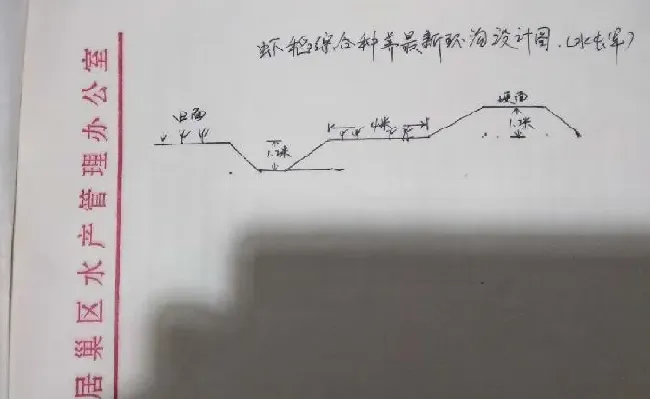 虾稻综合种养最新环沟设计图.
田面
1.2米
4米
埂面
1.2米
居巢区水产管理办公室